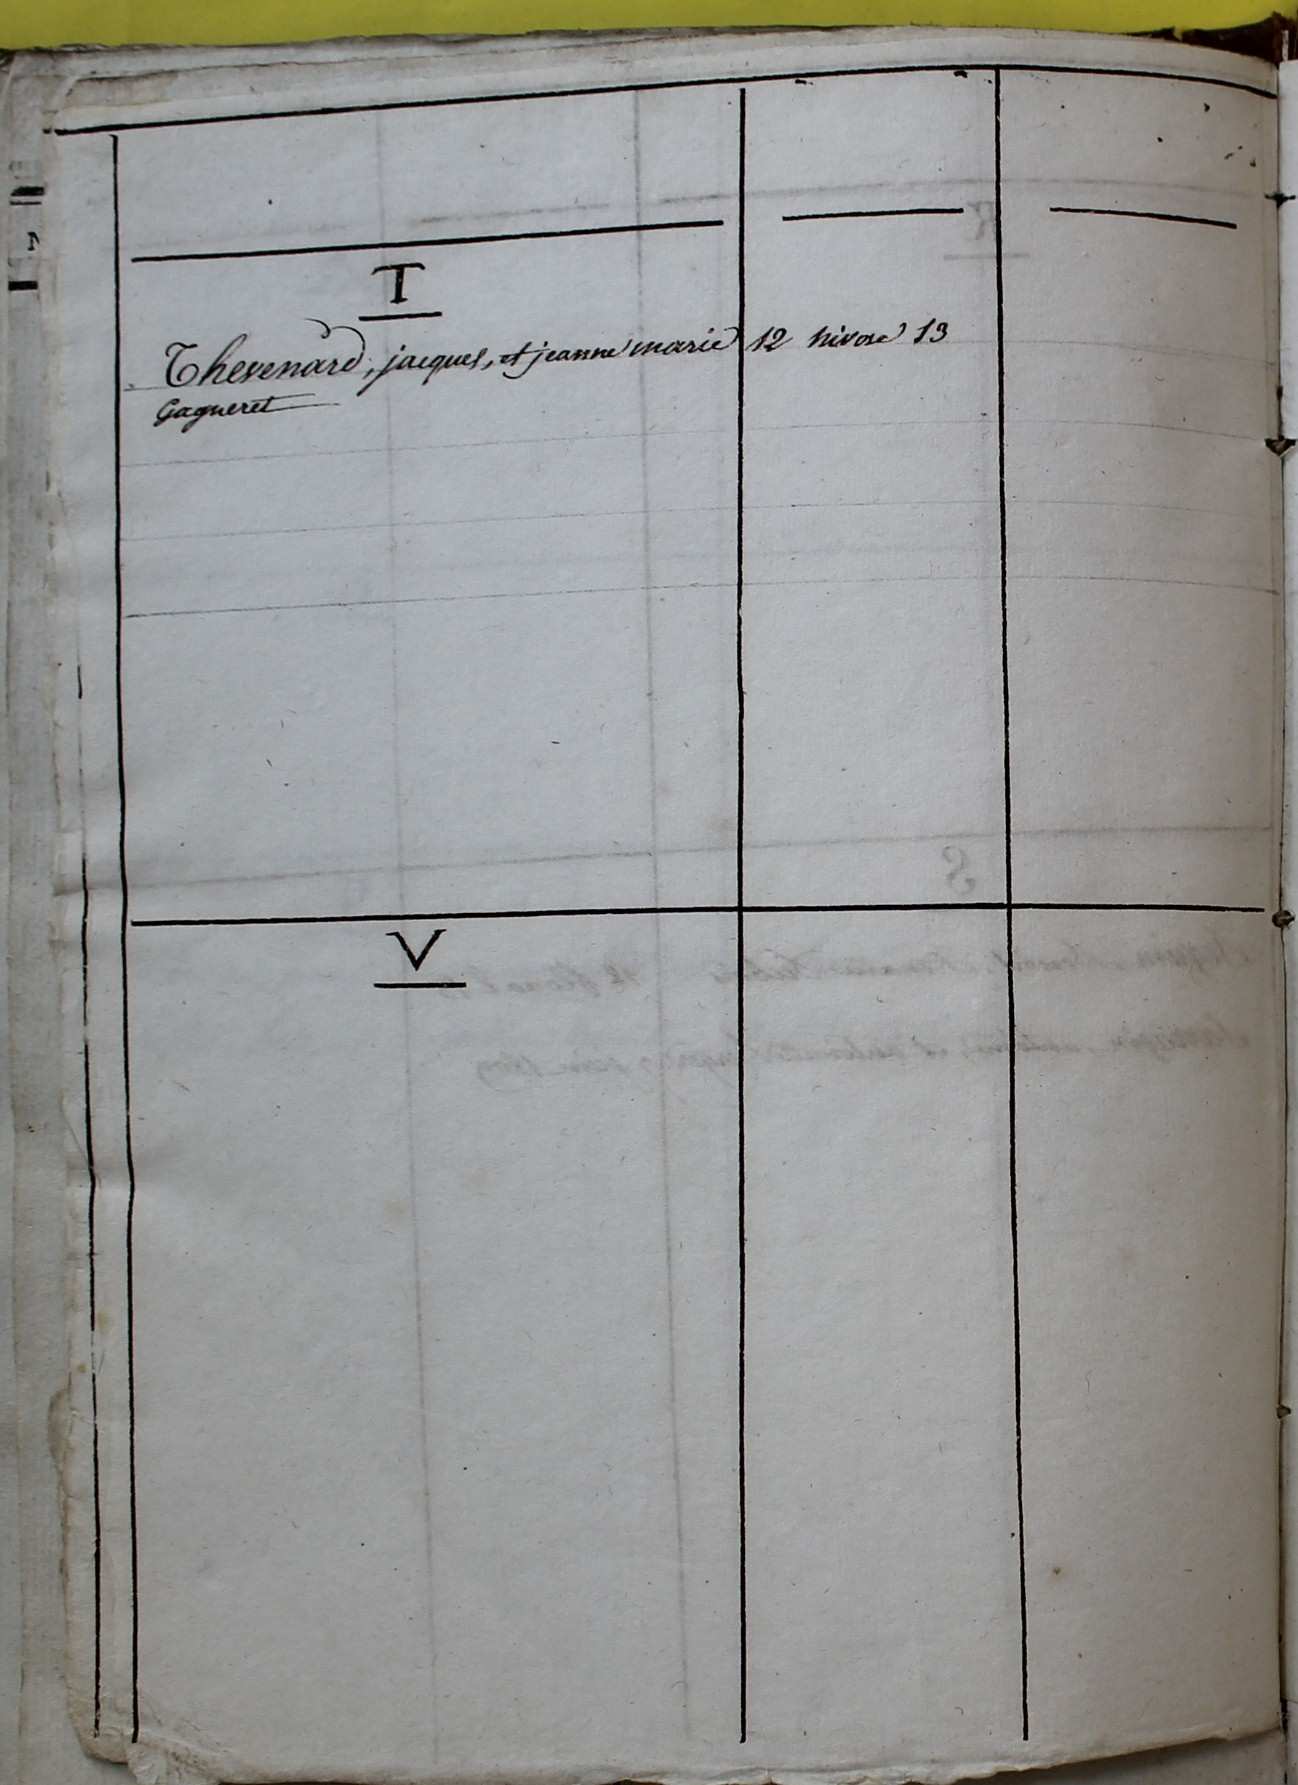 T
Thevenard, jacques, et jeanne marie 12 nivose 13
Gagneret
V